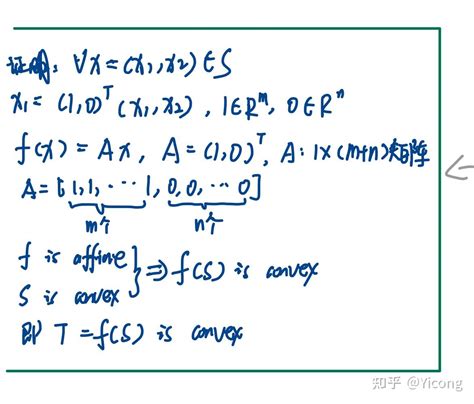 证明: ∀x=(x₁,x₂)∈S
x₁= (1,0)ᵀ(x₁,x₂), 1∈Rᵐ, 0∈Rⁿ
f(x) = Ax, A=(1,0)ᵀ, A: 1×(m+n)矩阵
A=[1,1,⋯1,0,0,⋯0]
m个 n个
f is affine
S is convex } ⇒ f(S) is convex
即 T=f(S) is convex
知乎 @Yicong